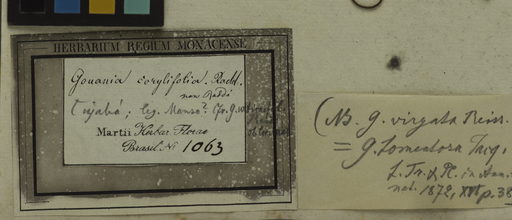 HERBARIUM REGIUM MONACENSE
Gouania corylifolia Raddi
non Raddi
Cujabá; leg. Manso?
Martii Herbar. Florae
Brasil. No 1063
(NB. G. virgata Reiss.
= G. tomentosa Jacq.
f. Tr. & Pl. in Ann.
nat. 1872, XVI p. 38